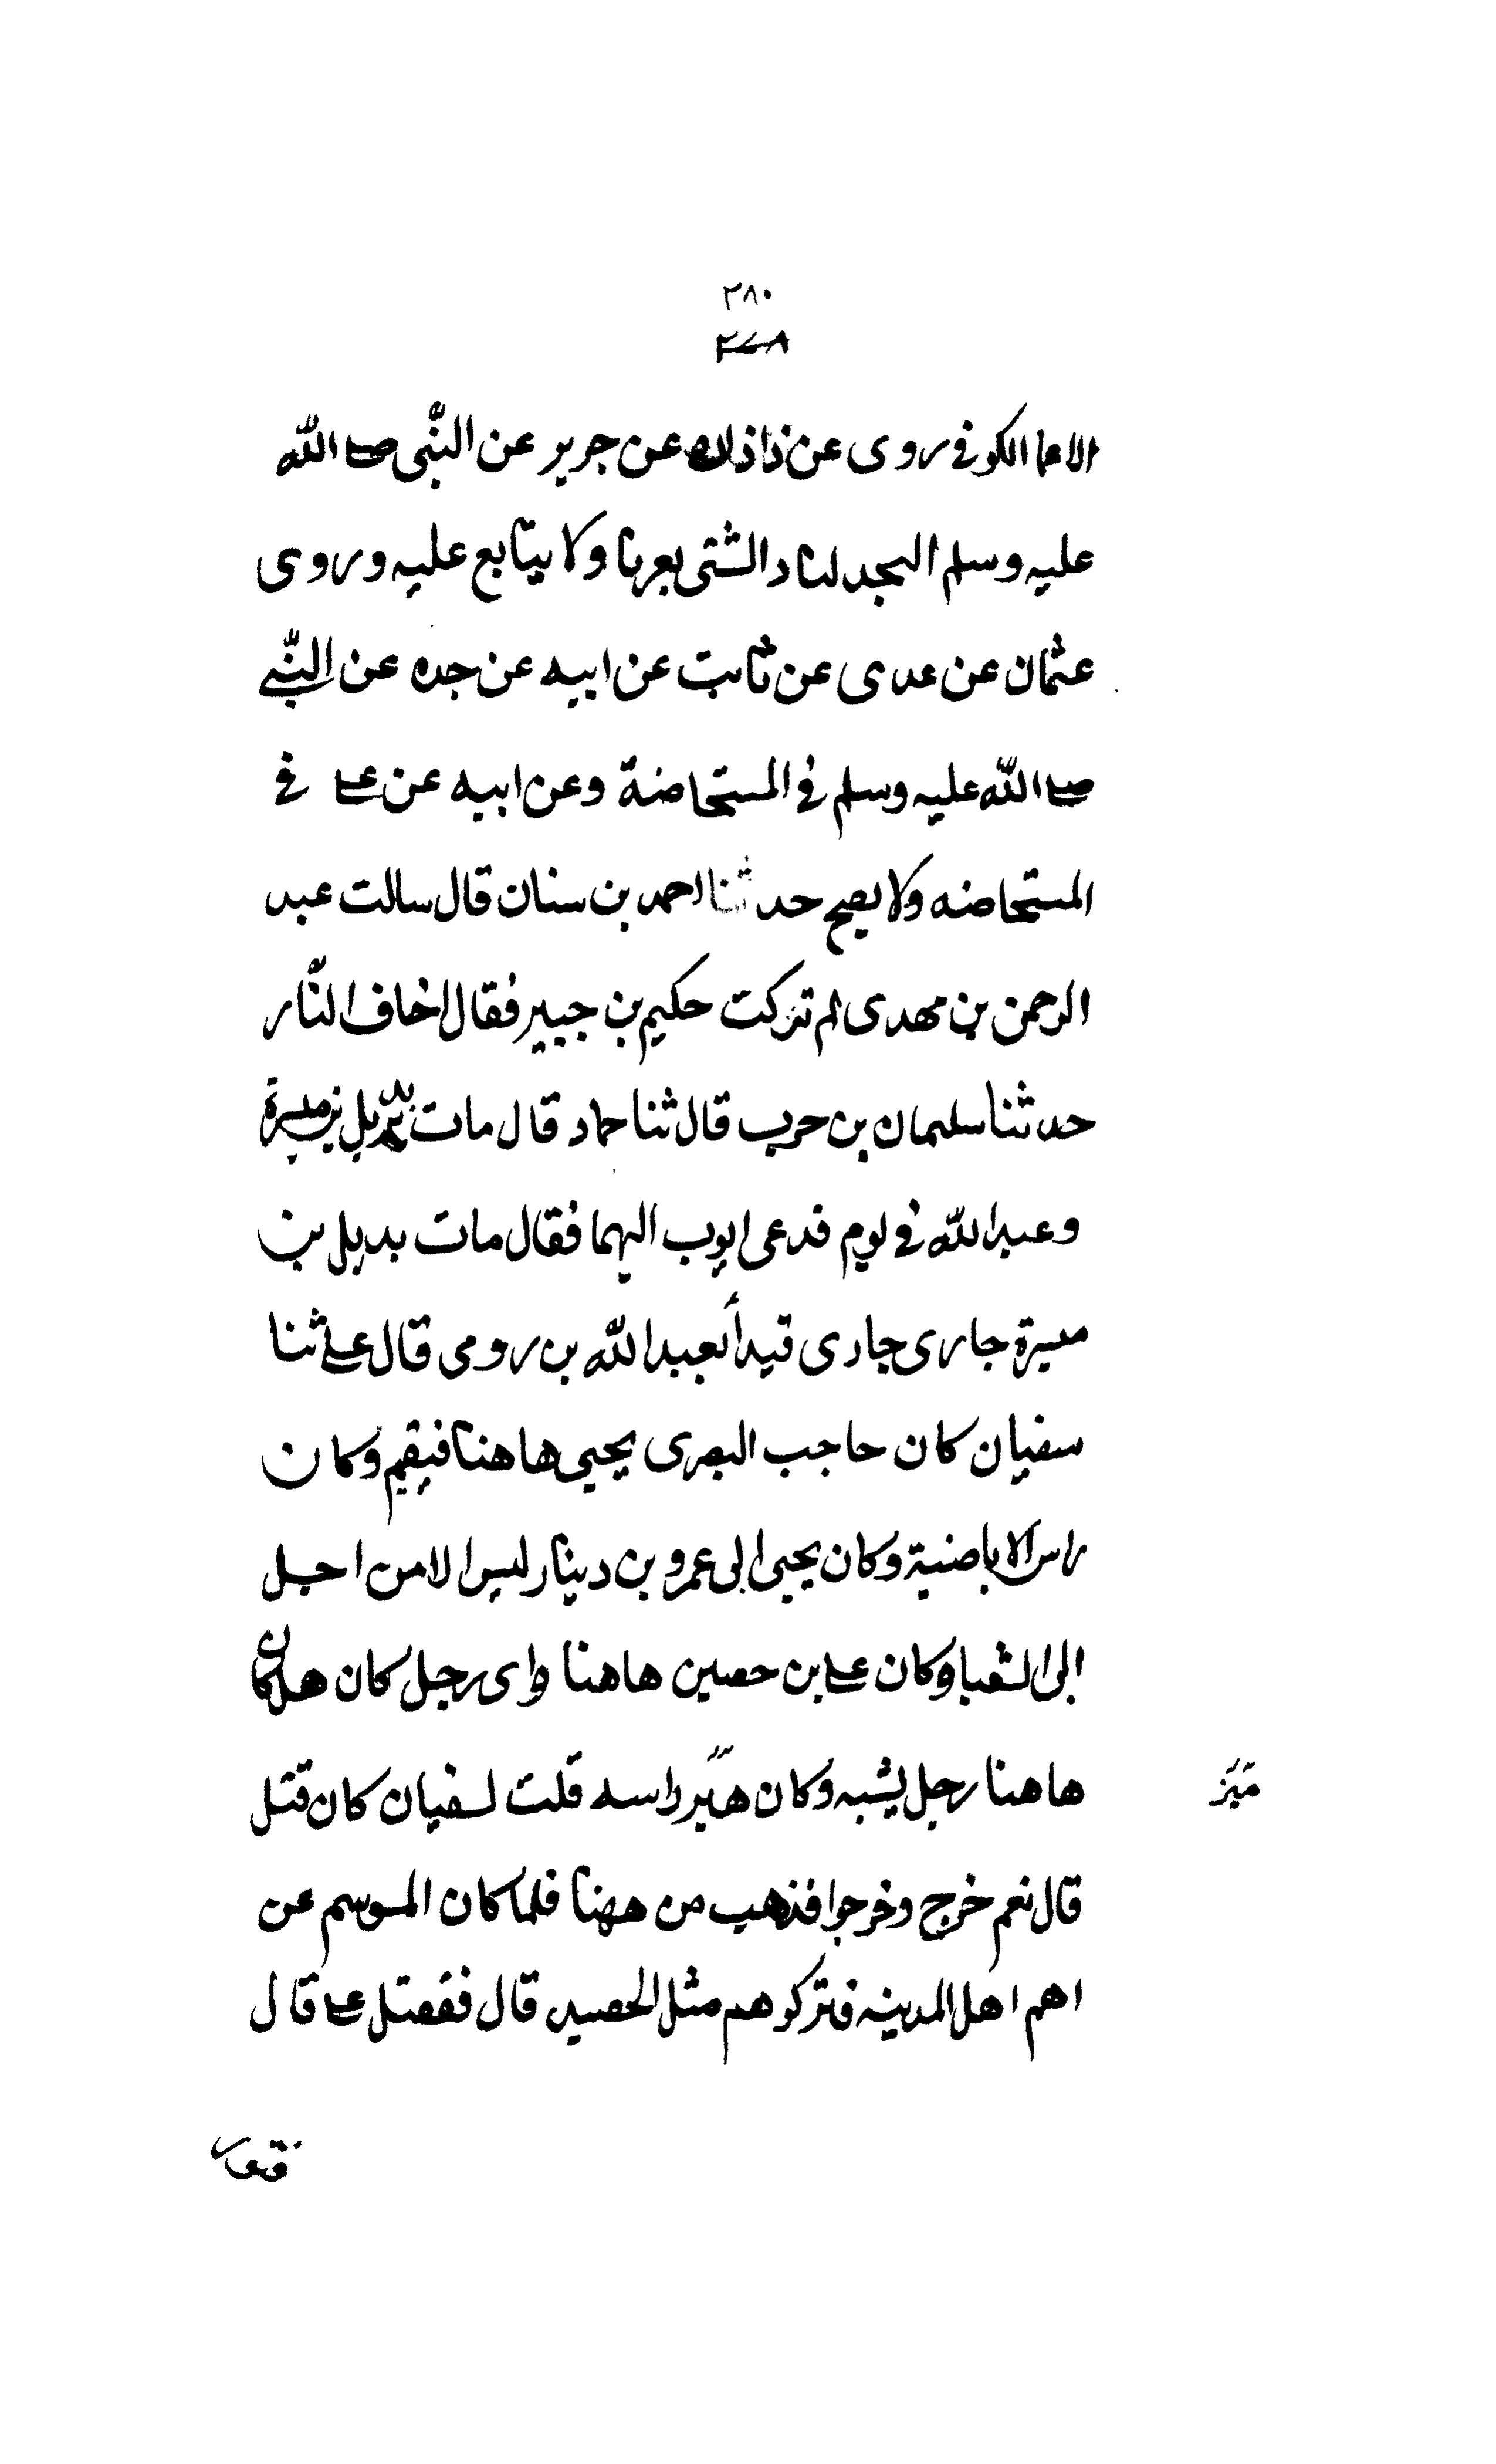 ٢٨٠
٢٧٨
الاعما الكوفى روى عن ذاذان عن جرير عن النّبى صلى الله
عليه وسلم اللحد لنا د الشتى بعرنا ولا يتابع عليه وروى
عثمان عن عدى عن ثابت عن ابيه عن جده عن النّبى
صلى الله عليه وسلم فى المستحاضة وعن ابيه عن على فى
المستحاضه ولا يصح حدثنا احمد بن سنان قال سالت عبد
الرحمن بن مهدى لم تركت حكيم بن جبير فقال اخاف النّار
حدثنا سليمان بن حرب قال ثنا حماد قال مات بديل بن ميسرة
وعبد الله فى يوم فدعى ايوب اليهما فقال مات بديل بن
ميسرة جارى جادى قيدأ لعبد الله بن رومى قال على ثنا
سفيان كان حاجب البصرى يحيى هاهنا فيقيم وكان
راس الاباضية وكان يحيى الى عمرو بن دينار ليس الا من اجل
الى الشعبا وكان على بن حصين هاهنا واى رجل كان هل كان
هاهنا رجل يشبه وكان راسه قلت لسفيان كان قتل
قال نعم خرج وخرجوا فذهب من ههنا فلما كان الموسم عن
اهم اهل المدينه فتركوهم مثل الحصيد قال ففقتل على قال